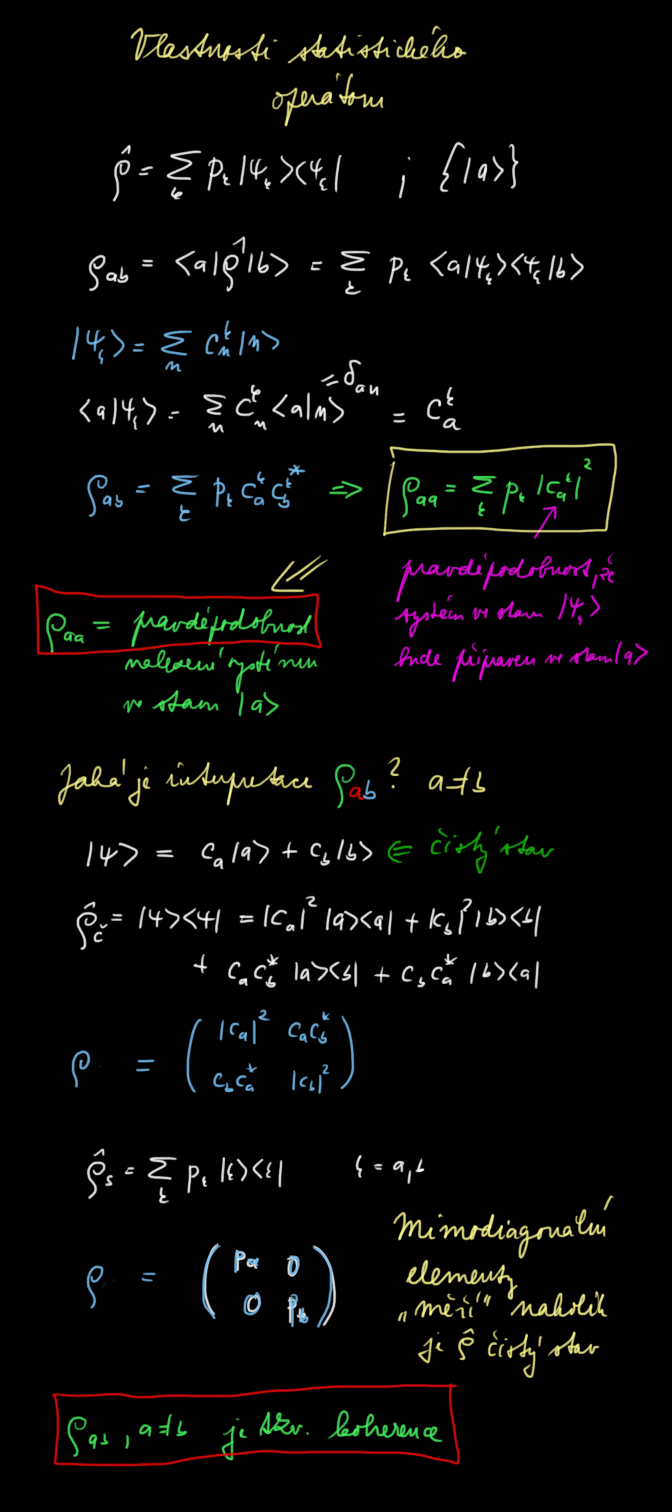 Vlastnosti statistického
operátoru
ρ̂ = Σ_k p_k |ψ_k><ψ_k| ; {|a>}
ρ_ab = <a|ρ̂|b> = Σ_k p_k <a|ψ_k><ψ_k|b>
|ψ_k> = Σ_n c_n^k |n>
<a|ψ_k> = Σ_n c_n^k <a|n> = δ_an = c_a^k
ρ_ab = Σ_k p_k c_a^k c_b^k* => ρ_aa = Σ_k p_k |c_a^k|²
pravděpodobnost, že
systém ve stavu |ψ_k>
bude připraven ve stavu |a>
ρ_aa = pravděpodobnost
nalezení systému
ve stavu |a>
Jaká je interpretace ρ_ab? a≠b
|ψ> = c_a |a> + c_b |b> ∈ čistý stav
ρ̂_č = |ψ><ψ| = |c_a|² |a><a| + |c_b|² |b><b|
+ c_a c_b* |a><b| + c_b c_a* |b><a|
ρ = ( |c_a|² c_a c_b*
c_b c_a* |c_b|² )
ρ̂_s = Σ_k p_k |k><k| k = a,b
ρ = ( p_a 0
0 p_b )
Mimodiagonální
elementy
„měří“ nakolik
je ρ̂ čistý stav
ρ_ab, a≠b je tzv. koherence